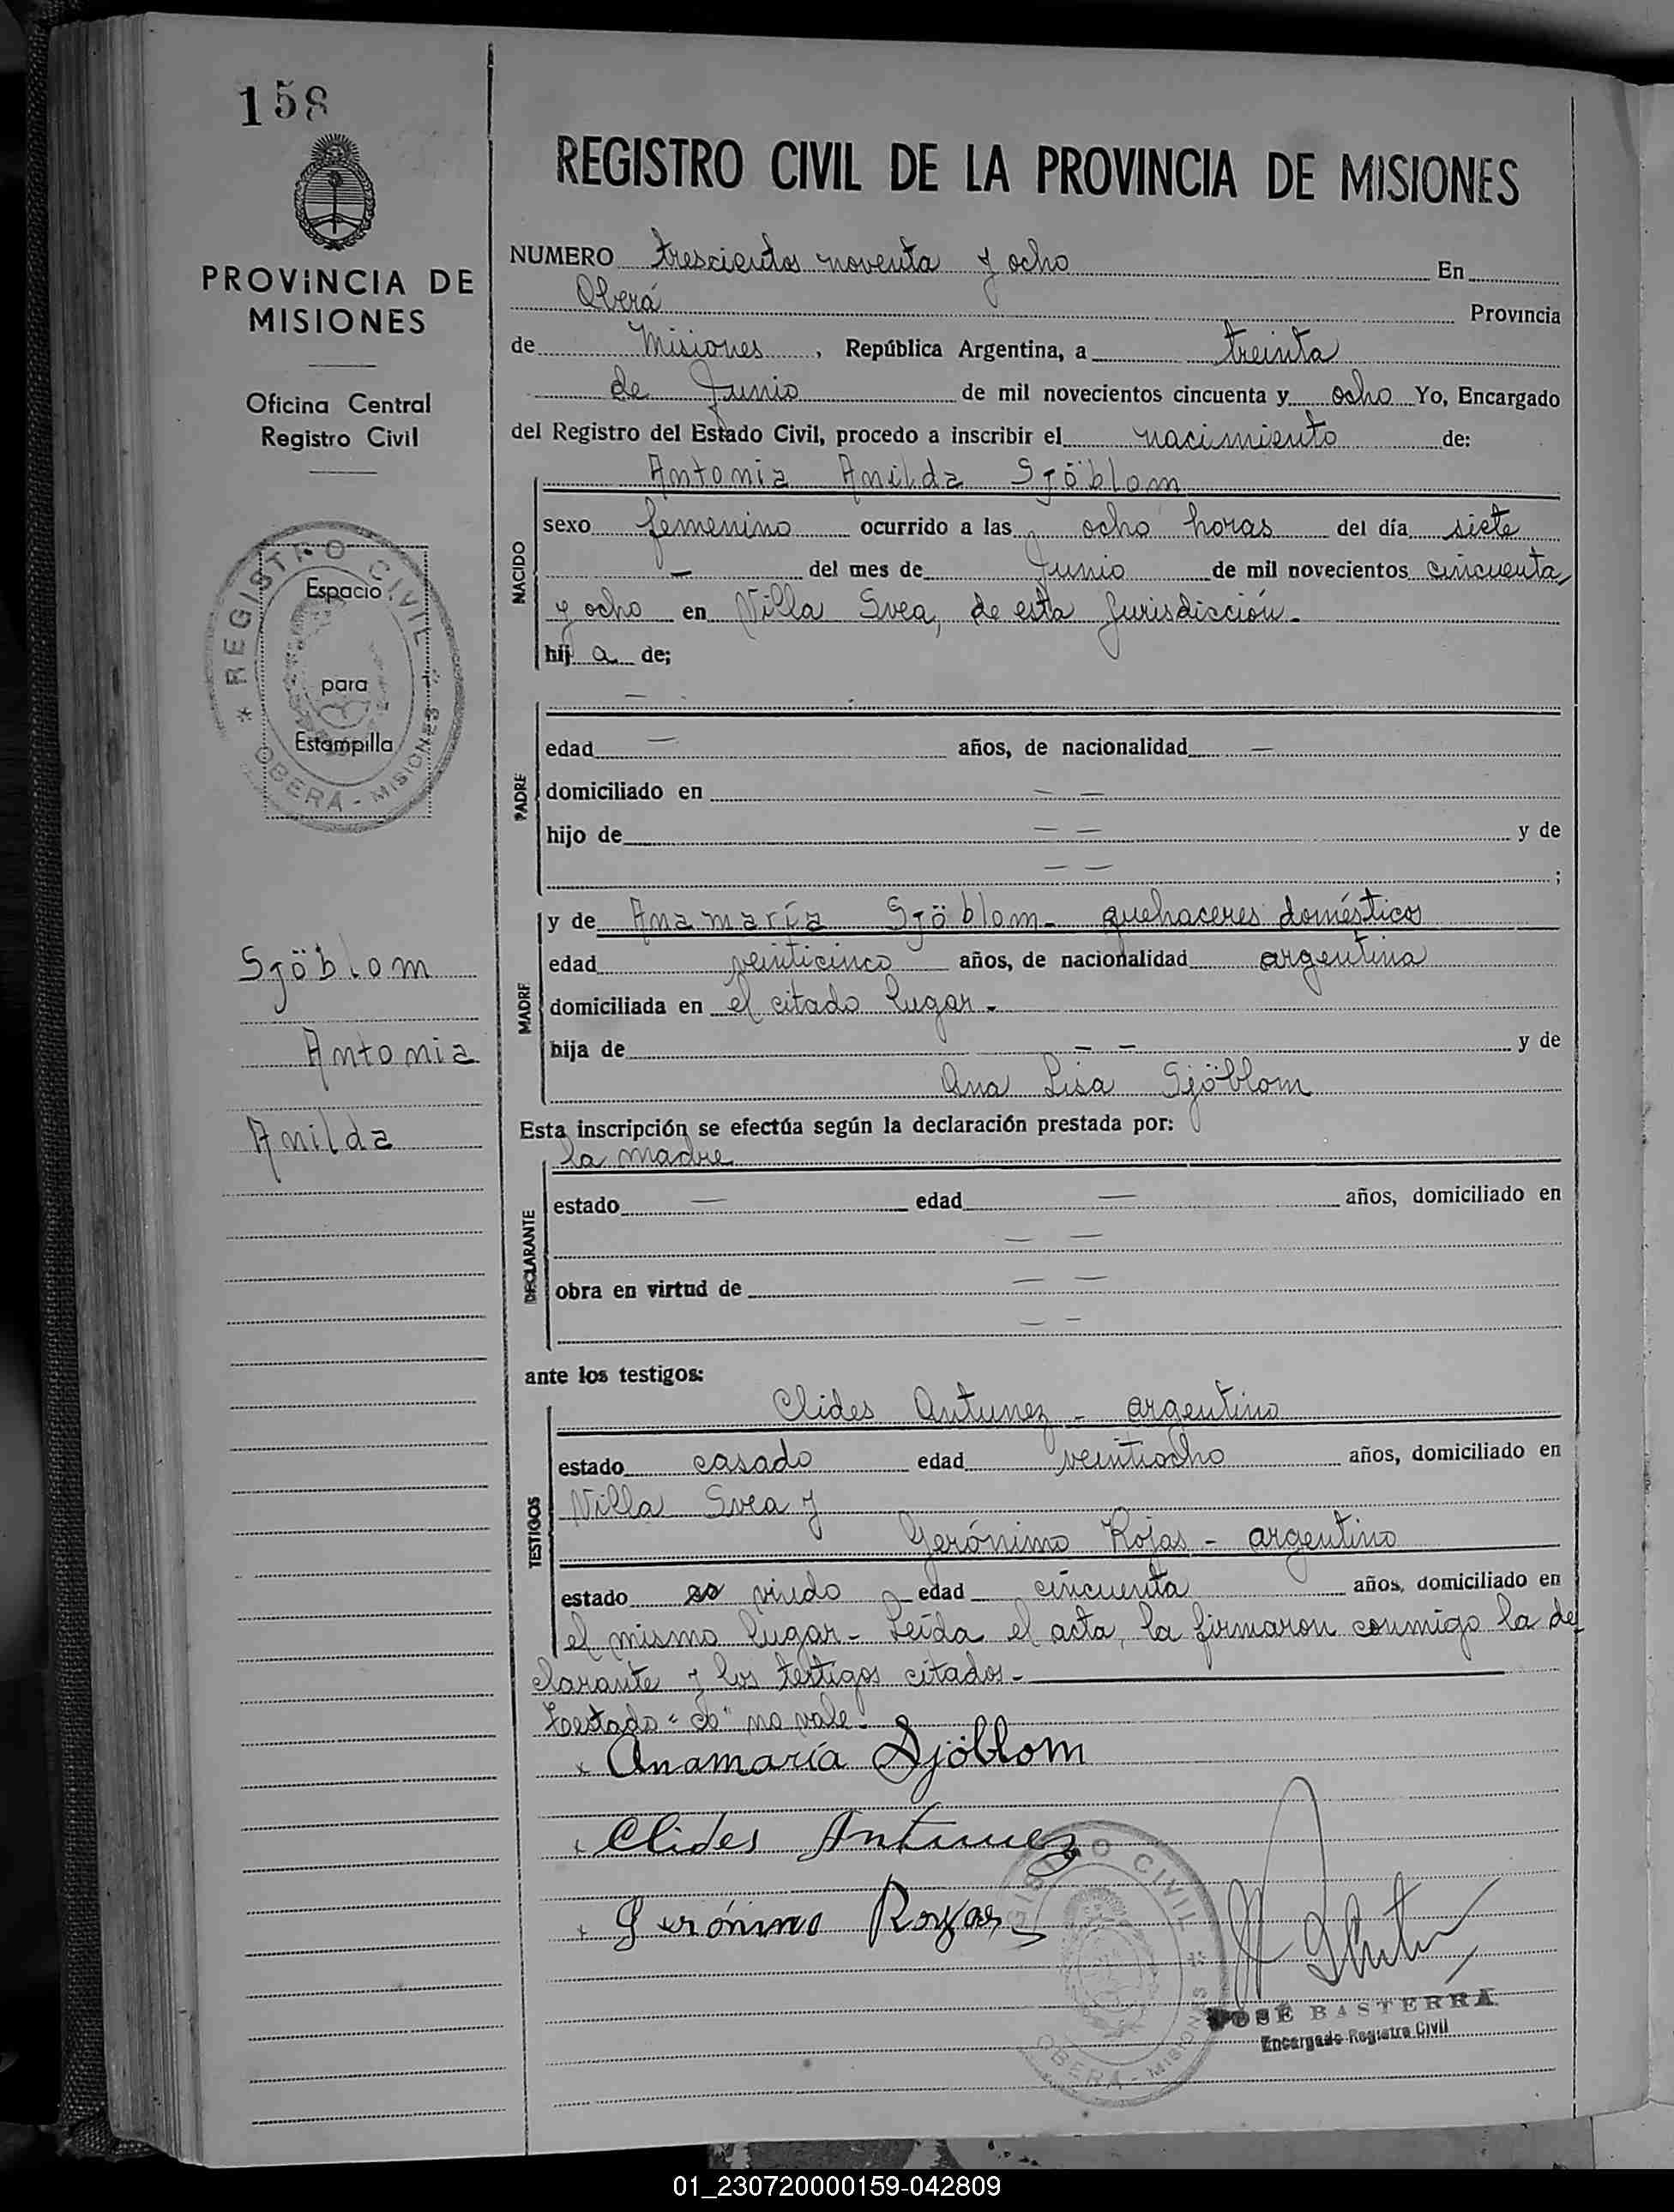 158
PROVINCIA DE
MISIONES
Oficina Central
Registro Civil
* REGISTRO CIVIL *
OBERÁ - MISIONES
Espacio
para
Estampilla
Sjöblom
Antonia
Anilda
REGISTRO CIVIL DE LA PROVINCIA DE MISIONES
NUMERO trescientos noventa y ocho En
Oberá Provincia
de Misiones, República Argentina, a treinta
de Junio de mil novecientos cincuenta y ocho Yo, Encargado
del Registro del Estado Civil, procedo a inscribir el nacimiento de:
Antonia Anilda Sjöblom
NACIDO
sexo femenino ocurrido a las ocho horas del día siete
— del mes de Junio de mil novecientos cincuenta
y ocho en Villa Svea, de esta Jurisdicción.
hij a de;
PADRE
—
edad — años, de nacionalidad —
domiciliado en — —
hijo de — — y de
— — ;
MADRE
y de Anamaría Sjöblom - quehaceres domésticos
edad veinticinco años, de nacionalidad argentina
domiciliada en el citado lugar -
hija de — — y de
Ana Lisa Sjöblom
Esta inscripción se efectúa según la declaración prestada por:
la madre
DECLARANTE
estado — edad — años, domiciliado en
— —
obra en virtud de — —
— —
ante los testigos:
TESTIGOS
Clides Antunez - argentino
estado casado edad veintiocho años, domiciliado en
Villa Svea y
Gerónimo Rojas - argentino
estado viudo edad cincuenta años, domiciliado en
el mismo lugar - Leída el acta, la firmaron conmigo la de
clarante y los testigos citados -
Testado " " no vale.
x Anamaría Sjöblom
Clides Antunez
+ Gerónimo Royas
REGISTRO CIVIL *
OBERÁ - MISIONES
JOSÉ BASTERRA
Encargado Registro Civil
01_230720000159-042809